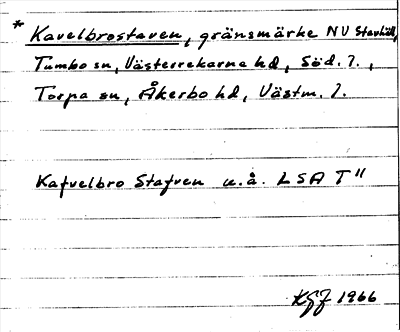 * Kavelbrostaven, gränsmärke NV Stavhäll,
Tumbo sn, Västerrekarne hd, Söd. l.,
Torpa sn, Åkerbo hd, Västm. l.
Kafvelbro Stafven u.å. LSA T"
KGZ 1966